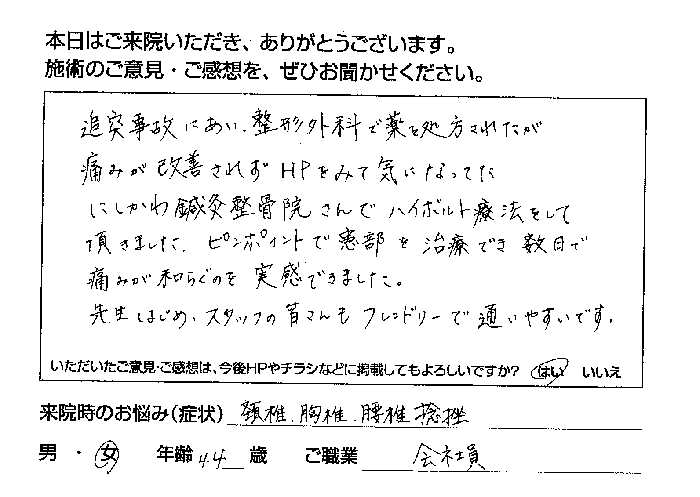 本日はご来院いただき、ありがとうございます。
施術のご意見・ご感想を、ぜひお聞かせください。
追突事故にあい、整形外科で薬を処方されたが
痛みが改善されずHPをみて気になってた
にしかわ鍼灸整骨院さんでハイボルト療法をして
頂きました。ピンポイントで患部を治療でき数日で
痛みが和らぐのを実感できました。
先生はじめ、スタッフの皆さんもフレンドリーで通いやすいです。
いただいたご意見・ご感想は、今後HPやチラシなどに掲載してもよろしいですか? はい いいえ
来院時のお悩み(症状) 頚椎、胸椎、腰椎捻挫
男・女 年齢 44 歳 ご職業 会社員